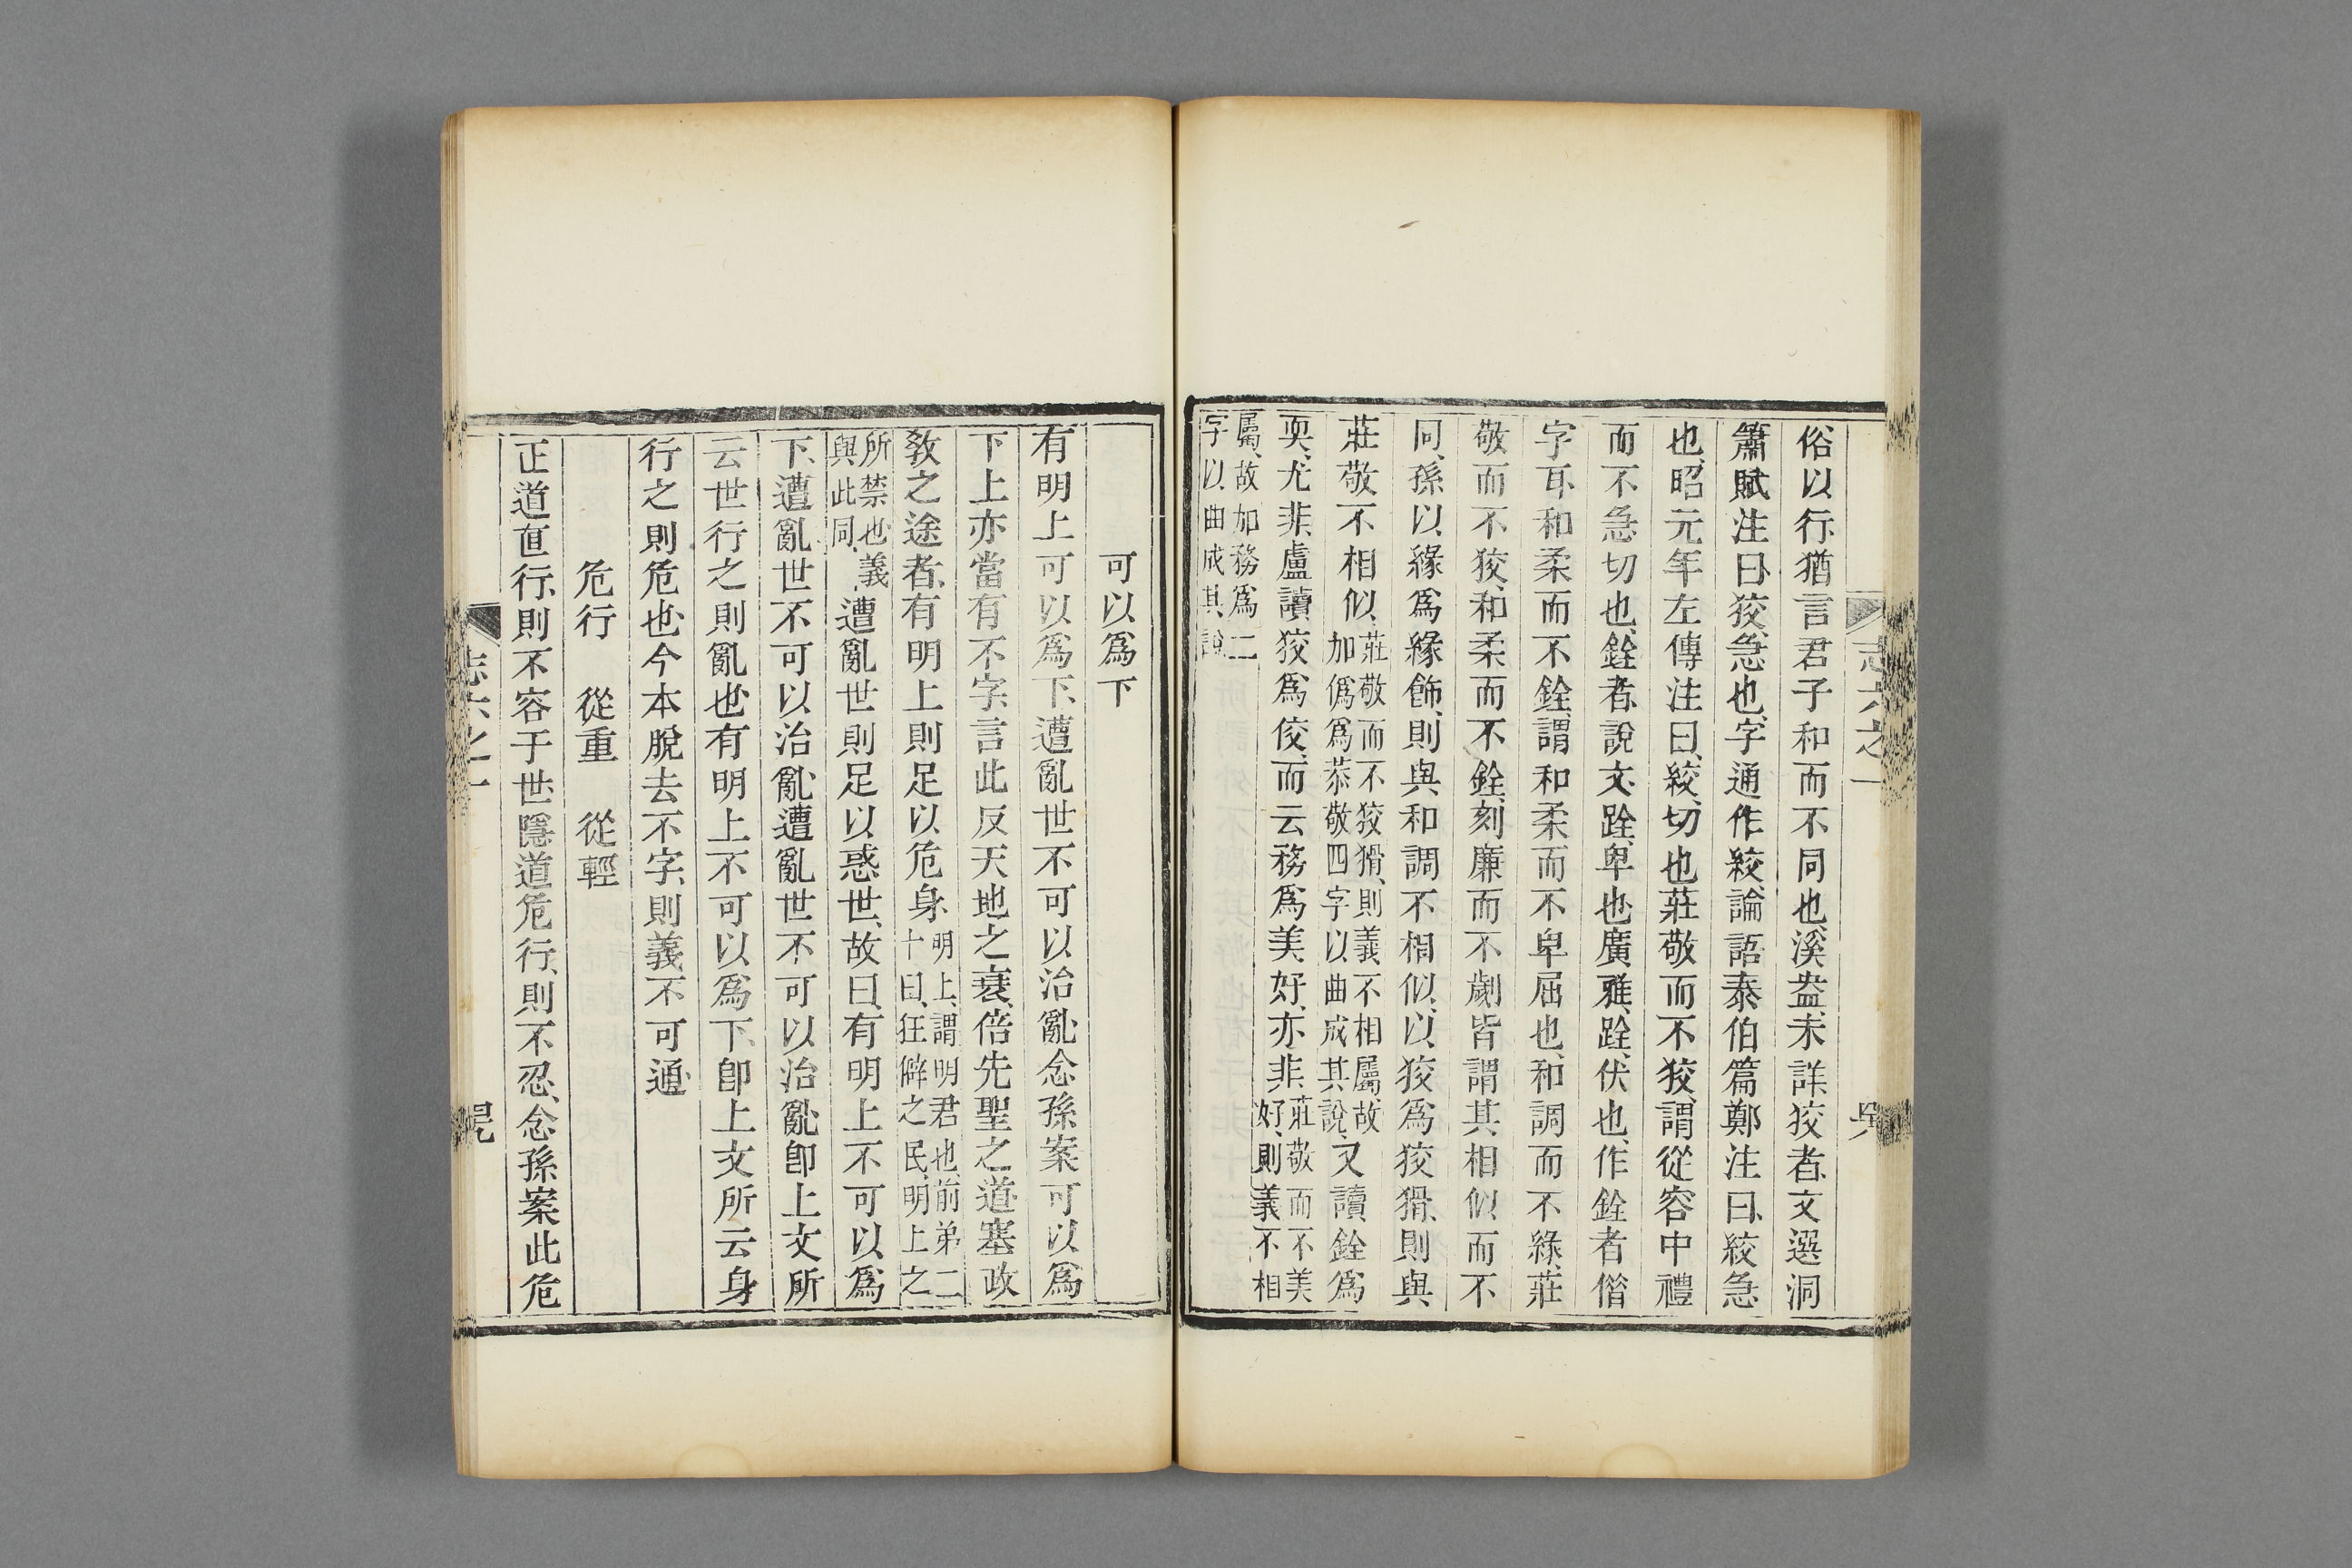 志六之一
俗以行、猶言君子和而不同也、溪盎、未詳狡者、文選洞
簫賦注曰、狡、急也、字通作絞、論語泰伯篇鄭注曰、絞急
也、昭元年左傳注曰、絞、切也莊敬而不狡、謂從容中禮
而不急切也、銓者、說文、跧、卑也、廣雅、跧、伏也、作銓者借
字耳、和柔而不銓、謂和柔而不卑屈也、和調而不緣、莊
敬而不狡、和柔而不銓、刻廉而不劌皆謂其相似而不
同、孫以緣爲緣飾、則與和調不相似、以狡爲狡猾、則與
莊敬不相似、莊敬而不狡猾、則義不相屬故加僞爲恭敬四字以曲成其說、又讀銓爲
耎、尤非、盧讀狡爲佼、而云務爲美好、亦非、莊敬而不美好、則義不相
屬、故加務爲二字以曲成其說
可以爲下
有明上可以爲下、遭亂世不可以治亂念孫案可以爲
下上亦當有不字、言此反天地之衰、倍先聖之道塞政
敎之途者、有明上則足以危身、明上、謂明君也前弟二十曰、狂僻之民、明上之
所禁也、義與此同、遭亂世則足以惑世、故曰、有明上不可以爲
下、遭亂世不可以治亂、遭亂世不可以治亂卽上文所
云世行之則亂也有明上不可以爲下、卽上文所云身
行之則危也、今本脫去不字、則義不可通、
危行　從重　從輕
正道直行、則不容于世、隱道危行、則不忍、念孫案此危
志六之一